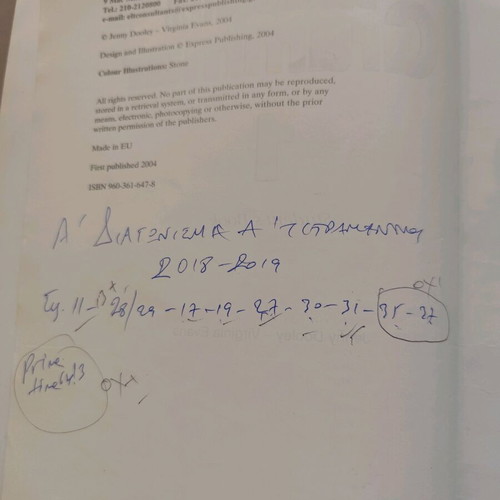 Tel.: 210-2120800
e-mail: eltconsultants@expresspublishing
© Jenny Dooley – Virginia Evans, 2004
Design and Illustration © Express Publishing, 2004
Colour Illustrations: Stone
All rights reserved. No part of this publication may be reproduced,
stored in a retrieval system, or transmitted in any form, or by any
means, electronic, photocopying or otherwise, without the prior
written permission of the publishers.
Made in EU
First published 2004
ISBN 960-361-647-8
Α' ΔΙΑΓΩΝΙΣΜΑ Α' ΤΕΤΡΑΜΗΝΟΥ
2018-2019
ΟΧΙ
28/29 - 17 - 19 - 27 - 30 - 31 - 35 - 37
Prime
time
ΟΧΙ